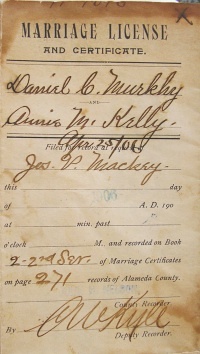 MARRIAGE LICENSE
AND CERTIFICATE.
Daniel C. Murkhy
AND
Annie M. Kelly.
Filed for record at request of
Jos. P. Mackey.
this day
of A. D. 190
at min. past
o'clock M. and recorded on Book
of Marriage Certificates
on page 271 records of Alameda County.
County Recorder.
By
Deputy Recorder.